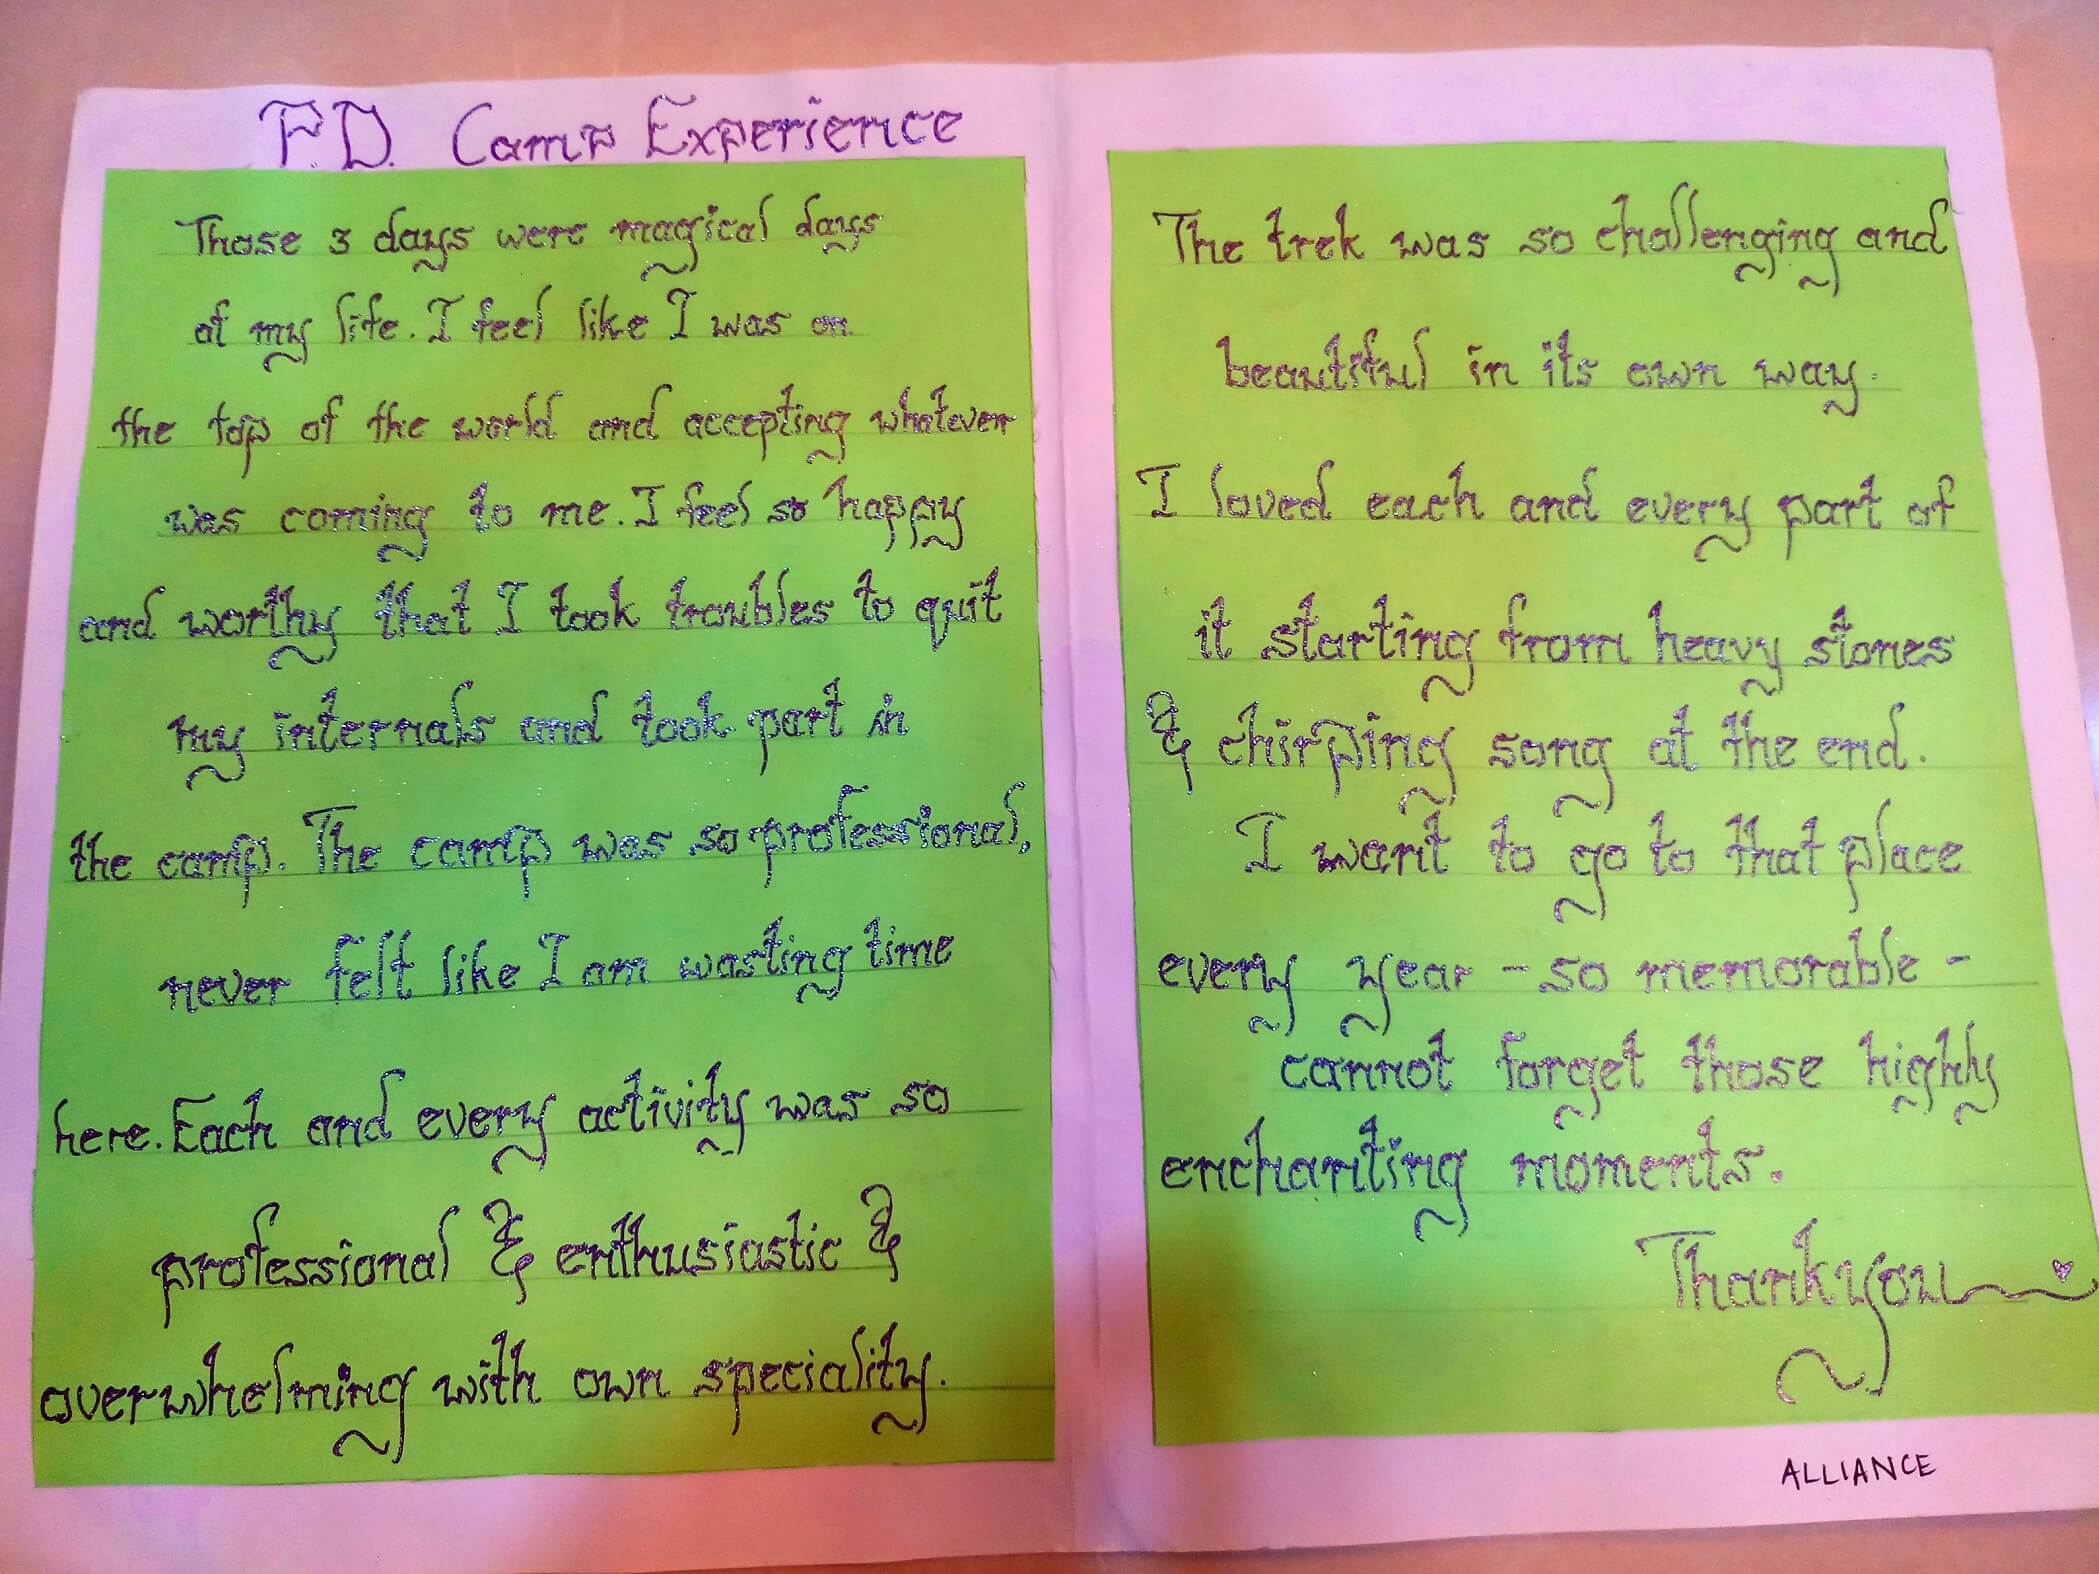 P.D. Camp Experience
Those 3 days were magical days
of my life. I feel like I was on
the top of the world and accepting whatever
was coming to me. I feel so happy
and worthy that I took troubles to quit
my internals and took part in
the camp. The camp was so professional,
never felt like I am wasting time
here. Each and every activity was so
professional & enthusiastic &
overwhelming with own speciality.
The trek was so challenging and
beautiful in its own way.
I loved each and every part of
it starting from heavy stones
& chirping song at the end.
I want to go to that place
every year - so memorable -
cannot forget those highly
enchanting moments.
Thank you
ALLIANCE